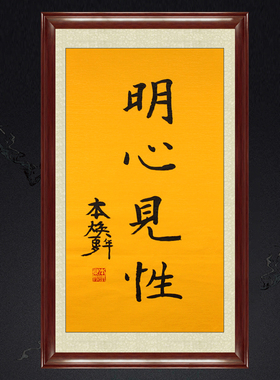 明心見性
本焕